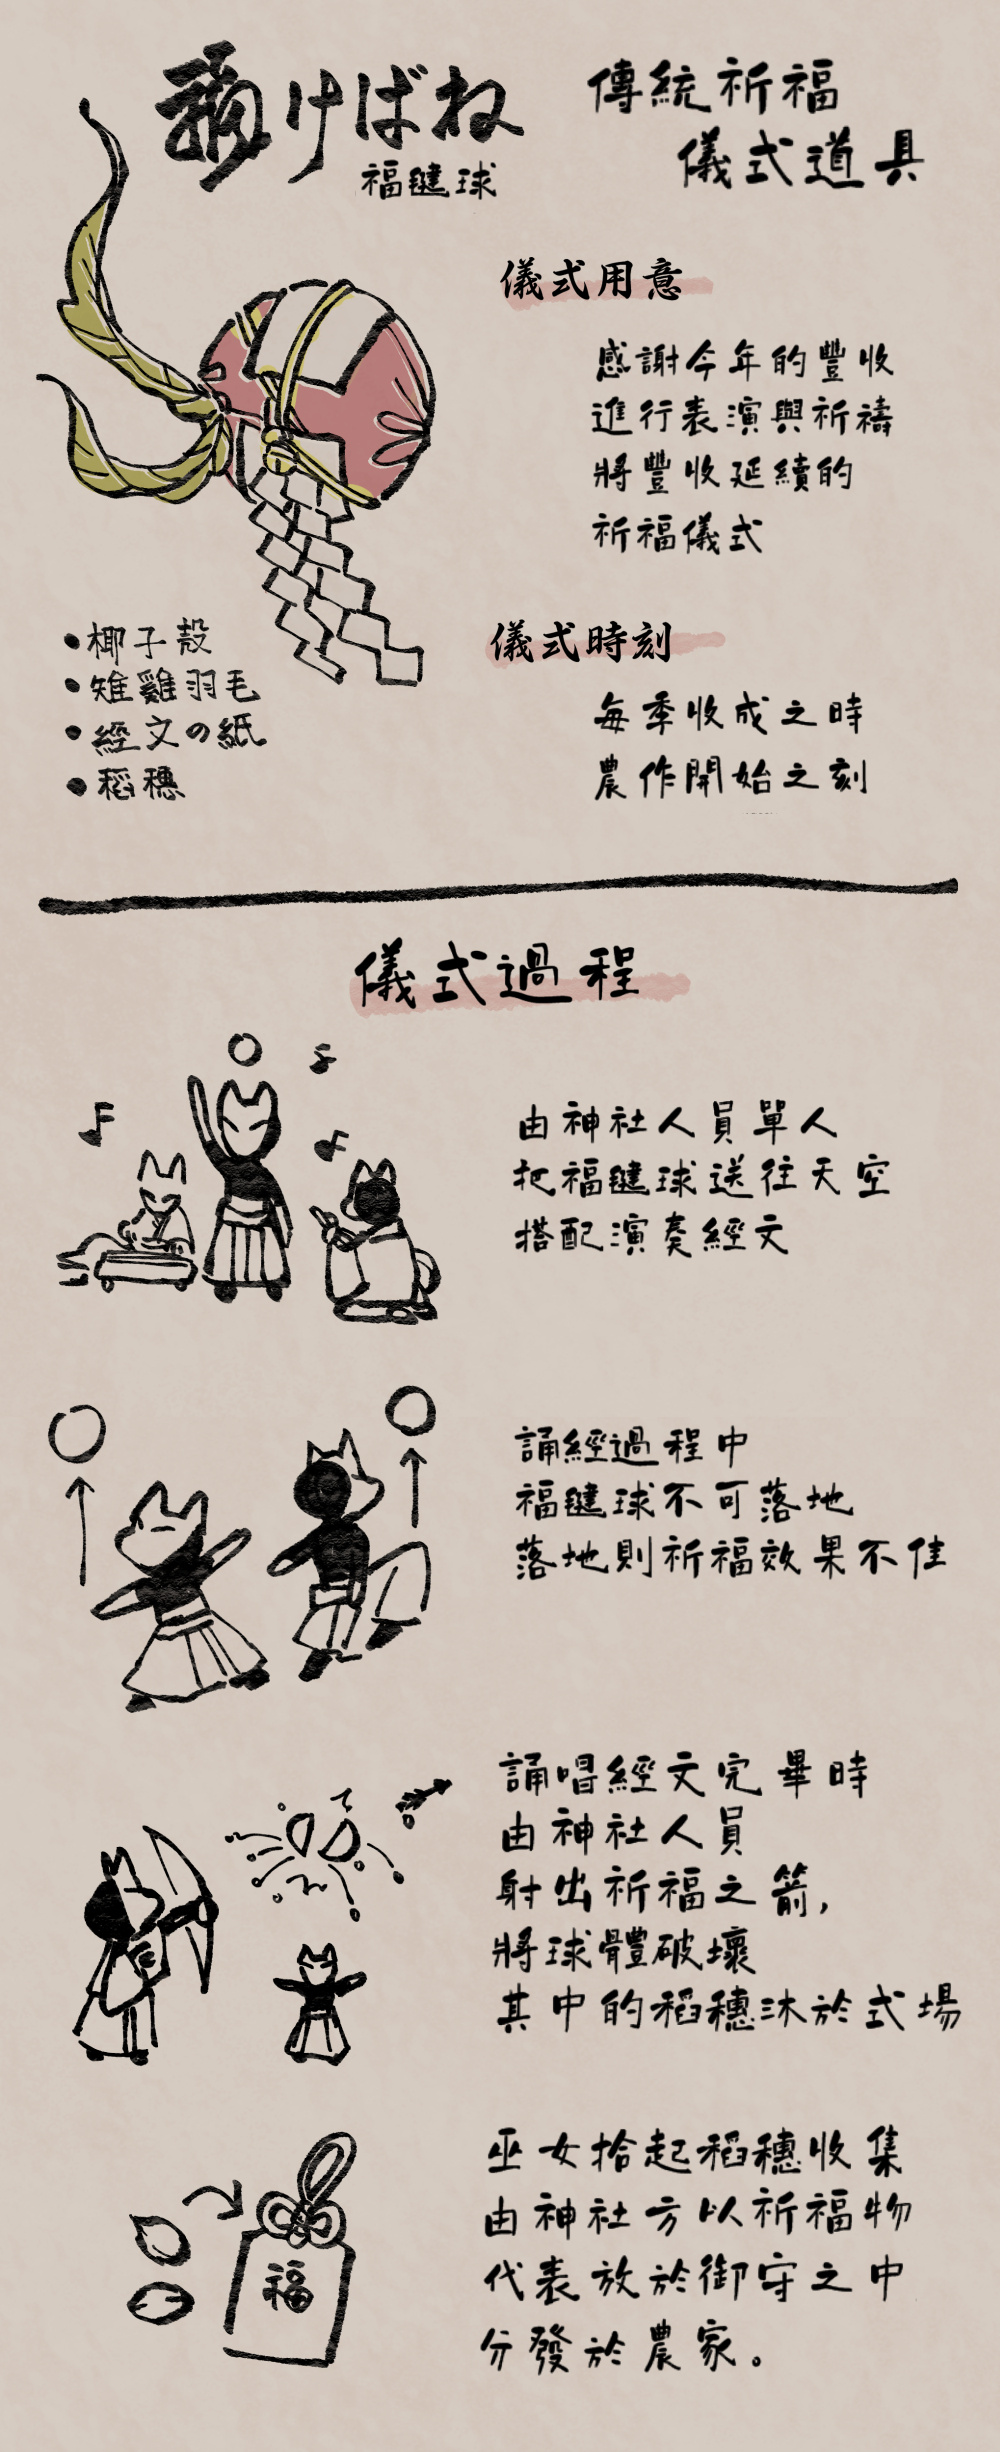 けばね
福毽球
傳統祈福
儀式道具
儀式用意
感謝今年的豐收
進行表演與祈禱
將豐收延續的
祈福儀式
•椰子殼
•雉雞羽毛
•經文の紙
•稻穗
儀式時刻
每季收成之時
農作開始之刻
儀式過程
由神社人員單人
把福毽球送往天空
搭配演奏經文
誦經過程中
福毽球不可落地
落地則祈福效果不佳
誦唱經文完畢時
由神社人員
射出祈福之箭,
將球體破壞
其中的稻穗沐於式場
巫女拾起稻穗收集
由神社方以祈福物
代表放於御守之中
分發於農家。
福